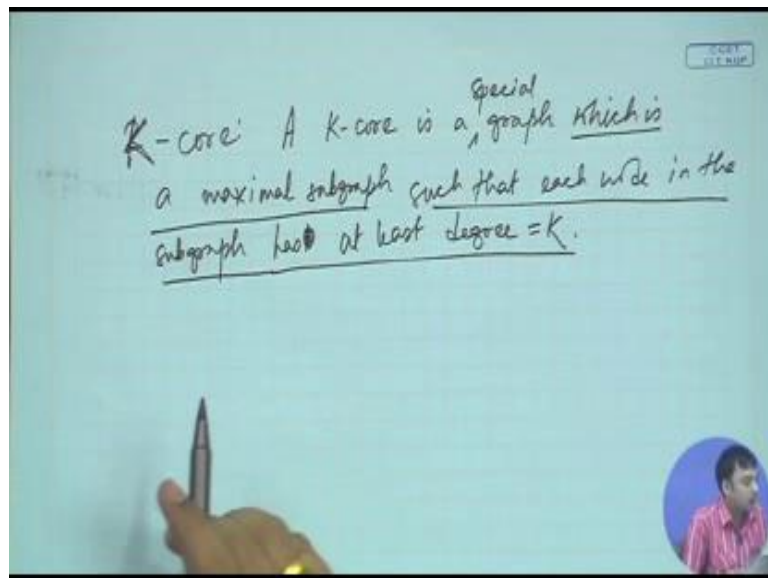 K-core: A K-core is a special graph which is
a maximal subgraph such that each node in the
subgraph has at least degree = K.